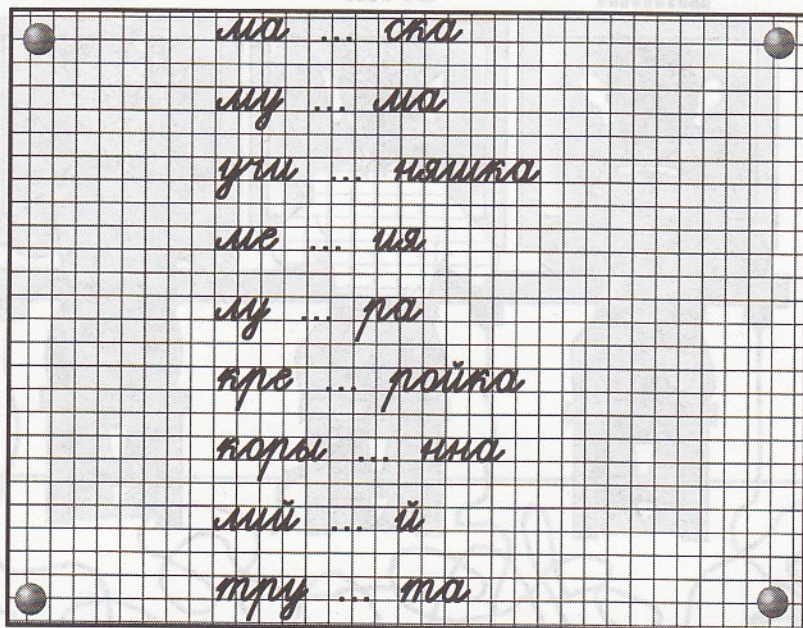 ма ... ска
му ... ма
учи ... няшка
ме ... ия
лу ... ра
кре ... ройка
коры ... нна
лий ... й
тру ... та